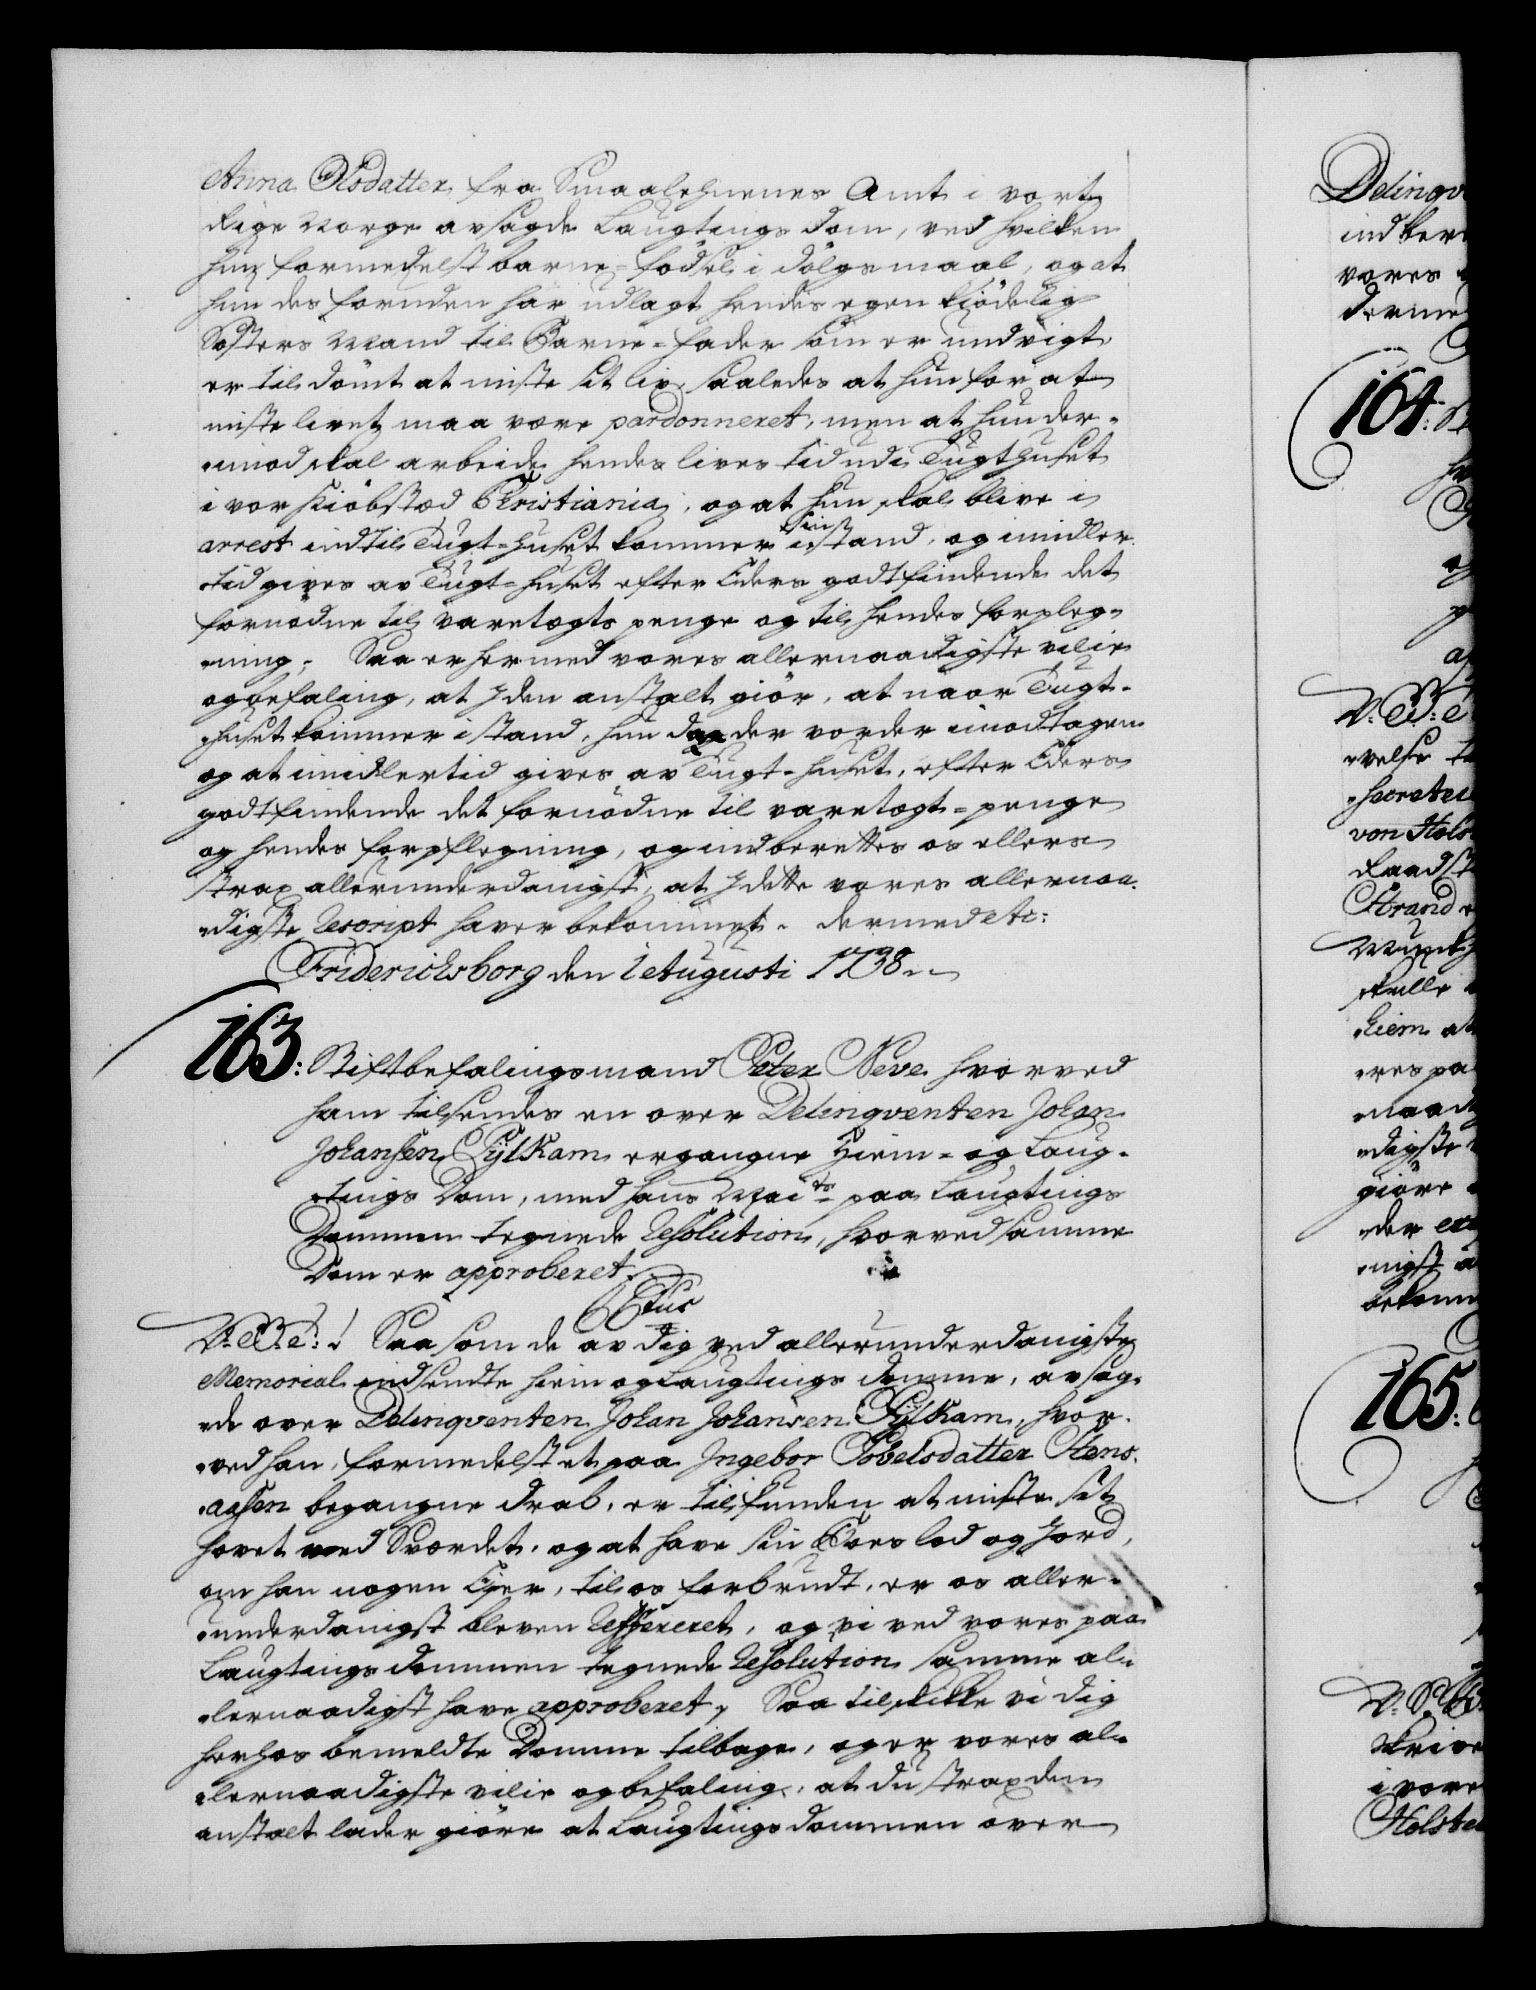 Anna Olsdatter fra Smaalehnenes Amt i vort
Rige Norge avsagde Laugtings dom, ved hvilken
hun formedelst barne-födsel i dölgsmaal, og at
hun des foruden har udlagt hendes egen kiödelig
Sösters Mand til Barne-fader som er undvigt,
er til dömt at miste sit liv, saaledes at hun for at
miste livet maa være pardonneret, men at hun der-
imod skal arbeide hendes livs tid udi Tugthuset
i vor Kiöbstæd Christiania, og at hun skal blive i
arrest indtil Tugt-huset kommer i stand, og imidler-
tid gives av Tugt-huset efter Eders godtfindende det
fornödne til varetægts penge og til hendes forpleg-
ning; Saa er hermed vores allernaadigste vilie
og befaling, at I den anstalt giör, at naar Tugt-
huset kommer i stand, hun da der vorder imodtagen
og at imidlertid gives av Tugt-huset, efter Eders
godtfindende det fornödne til varetægt-penge
og hendes forpflegning, og indberettes os ellers
strax allerunderdanigst, at I dette vores allernaa-
digste Rescript haver bekommet. dermed etc:
Friderichsborg den 1 Augusti 1738.
163: Stiftbefalingsmand Peter Neve hvorved
ham tilsendes en over Delinqventen Johan
Johansen Fylkam ergangne Hiem- og Laug-
tings Dom, med hans Mai:ts paa Laugtings
Dommen tegnede Resolution, hvorved samme
Dom er approberet.
C6tus
V: G: T: ! Saasom de av dig ved allerunderdanigste
Memorial indsendte hiem og Laugtings domme, avsag-
de over Delinqventen Johan Johansen Fylkam, hvor-
ved han, formedelst et paa Ingebor Povelsdatter Stens-
aasen begangne drab, er tilfunden at miste sit
hovet med Sværdet, og at have sin Boes lod og Jord,
om han nogen Eyer, til os forbrudt, er os aller-
underdanigst bleven Refereret, og vi ved vores paa
Laugtings dommen tegnede Resolution samme al-
lernaadigst have approberet; Saa tilskikke vi dig
herhos bemeldte Domme tilbage, og er vores al-
lernaadigste vilie og befaling, at du strax den
anstalt lader giöre at Laugtings dommen over
Delinqv
ind
vores
derme
164:
velse
secretei
von Hols
Raads
Strand
skulle
hiem at
eres pa
naad
digste
giöre
der
nigst
bekom
165:
Skrive
i vore
Holste